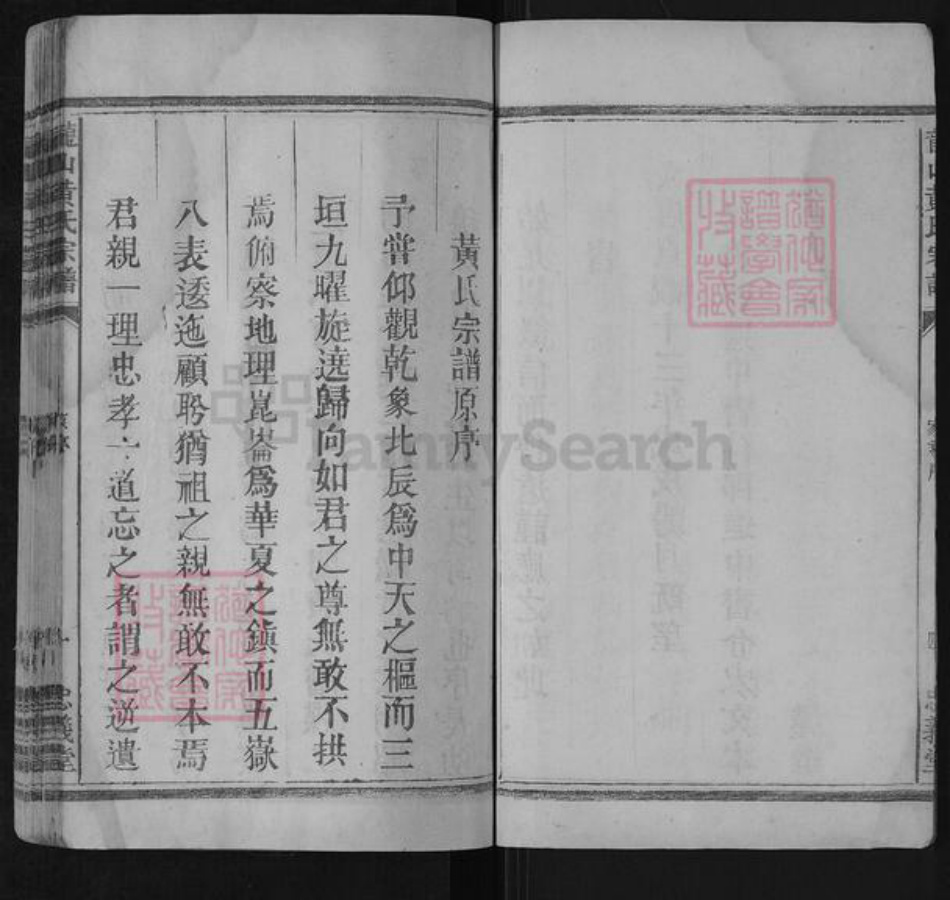 黃氏宗譜原序
予嘗仰觀乾象北辰爲中天之樞而三
垣九曜旋遶歸向如君之尊無敢不拱
焉俯察地理崑崙爲華夏之鎮而五嶽
八表逶迤顧盼猶祖之親無敢不本焉
君親一理忠孝一道忘之者謂之逆遺
龍山黃氏宗譜
忠義堂
FamilySearch